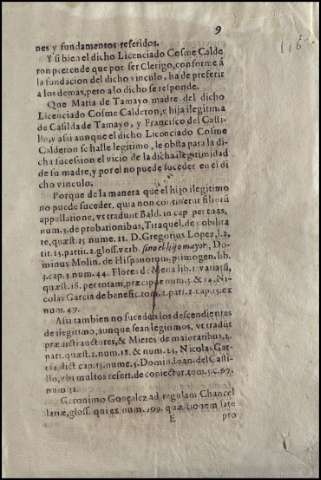 9
116
nes y fundamentos referidos.
Y si bien el dicho Licenciado Cosme Calde
ron pretende que por ser Clerigo, conforme à
la fundacion del dicho vinculo, ha de preferir
a los demas, pero a lo dicho se responde.
Que Maria de Tamayo madre del dicho
Licenciado Cosme Calderon, es hija ilegitima
de Casilda de Tamayo, y Francisco del Casti-
llo, y assi aunque el dicho Licenciado Cosme
Calderon se halle legitimo, le obsta para la di-
cha sucession el vicio de la dicha ilegitimidad
de su madre, y por el no puede suceder en el di
cho vinculo.
Porque de la manera que el hijo ilegitimo
no puede suceder, quia non continetur filiorũ
appellatione, vt tradit Bald. in cap. per tuas,
num. de probationibus, Tiraquel. de nobilita
te, quæst. 15. nume. 11. D. Gregorius Lopez, l. 2.
tit. 15. partit. 2. gloss. verb. sino el hijo mayor, Do
minus Molin. de Hispanorum primogen. lib.
3. cap. 3. num. 44. Flores de Mena lib. 1. variarũ,
quæst. 18. per totam, præcipue num. & 14. Ni-
colas Garcia de benefic. tom. 1. part. 2. cap. 15. ex
num. 47.
Assi tambien no suceden los descendientes
de ilegitimo, aunque sean legitimos, vt tradũt
prædicti auctores, & Mieres de maioratibus, 1.
part. quæst. 2. num. 18. & num. 25. Nicolas Gar-
cia, dict. cap. 15. nume. 5. Dom. Ioan. del Casti-
llo, vbi multos refert, de coniectur. tom. 5. c. 67.
num. 31.
Geronimo Gonçalez ad regulam Chancel
lariæ, gloss. qui ex num. 199. quæstionem late
E
pro